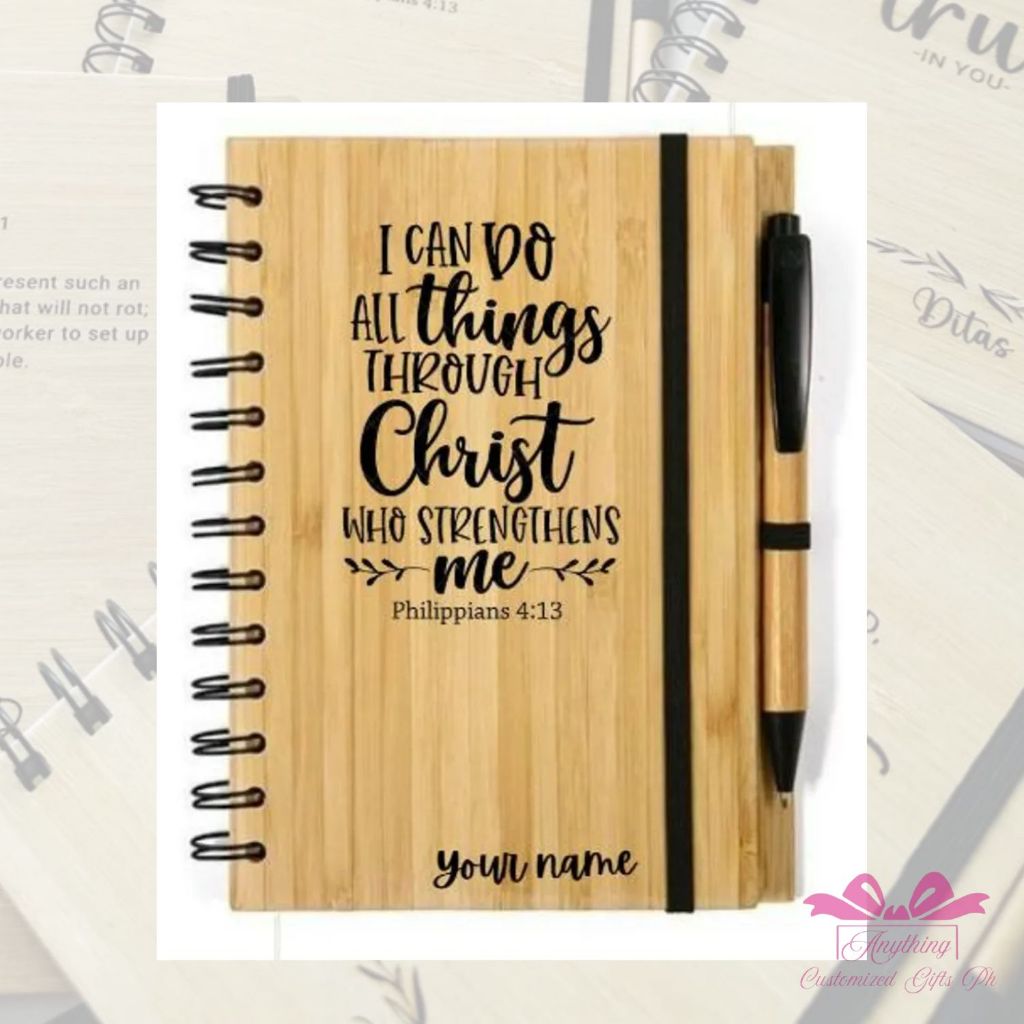 I CAN DO
ALL things
THROUGH
Christ
WHO STRENGTHENS
me
Philippians 4:13
your name
Anything
Customized Gifts Ph
4:13
-IN YOU-
resent such an
hat will not rot;
orker to set up
Ditas